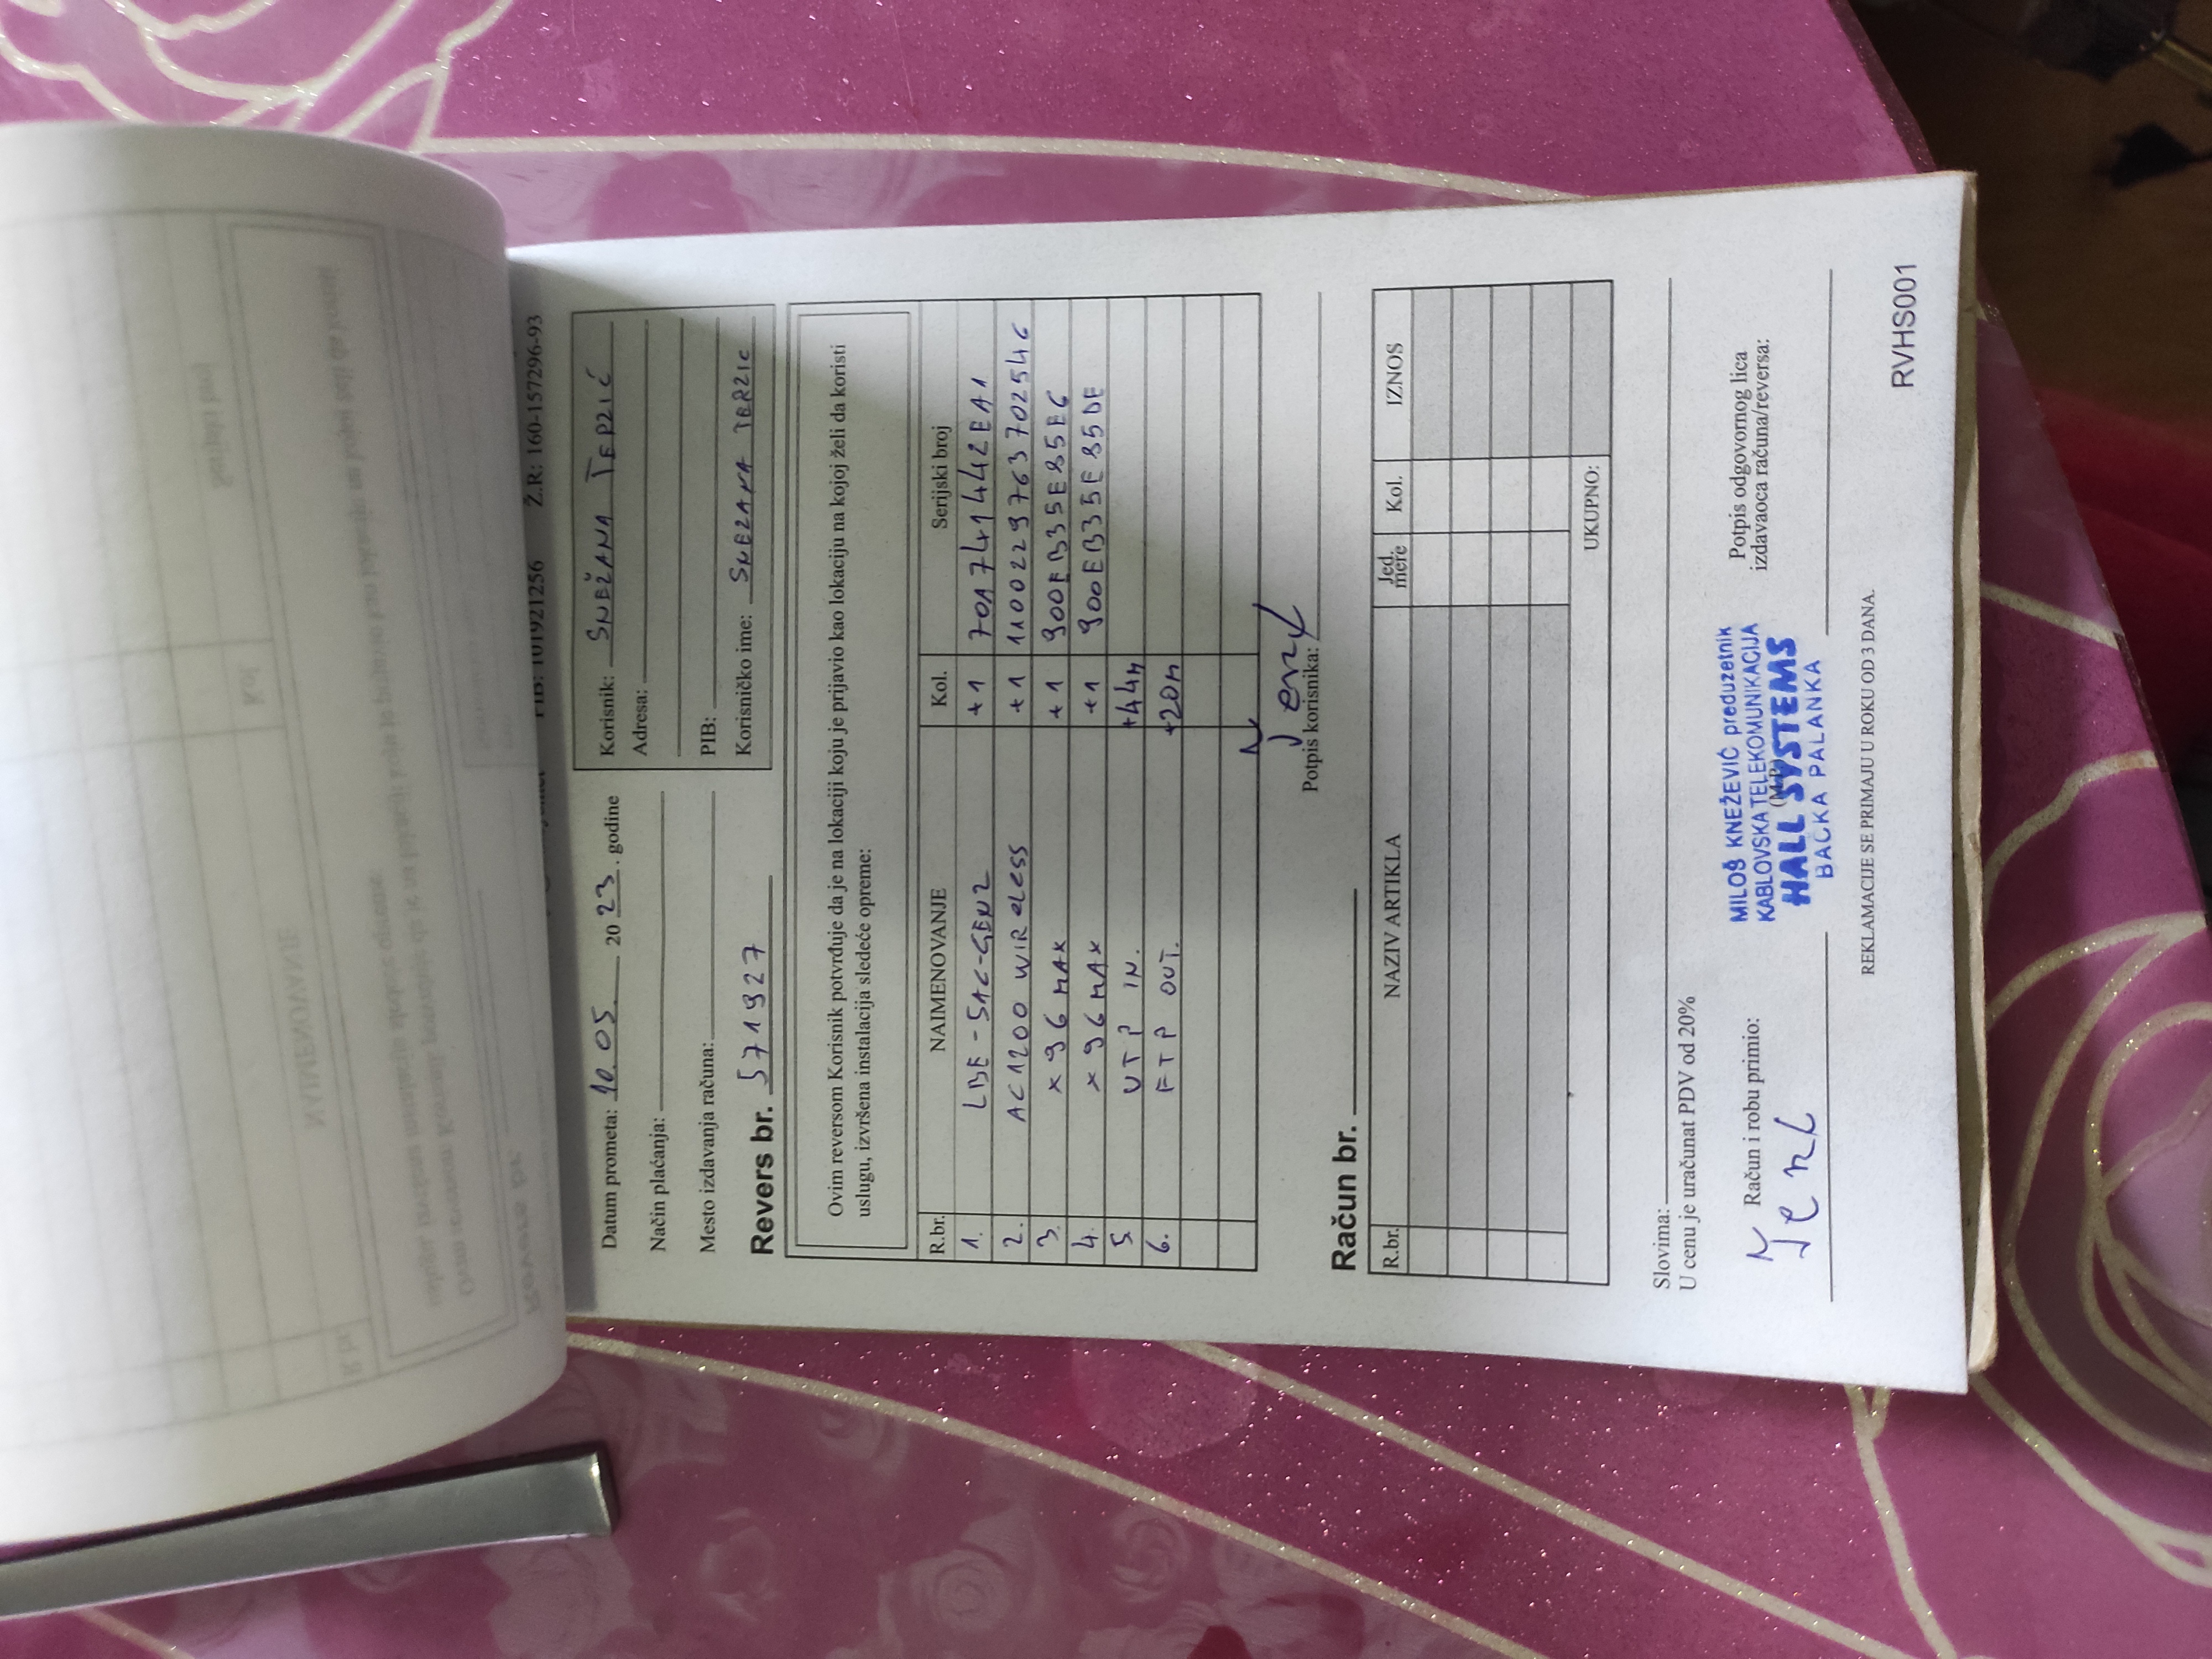 PIB: 101921256 Ž.R: 160-157296-93
Datum prometa: 10.05 2023. godine
Način plaćanja:
Mesto izdavanja računa:
Korisnik: SNEŽANA TERZIĆ
Adresa:
PIB:
Korisničko ime: SNEZANA TERZIC
Revers br. 571927
Ovim reversom Korisnik potvrđuje da je na lokaciji koju je prijavio kao lokaciju na kojoj želi da koristi
uslugu, izvršena instalacija sledeće opreme:
R.br. NAIMENOVANJE Kol. Serijski broj
1. LBE-5AC-GEN2 +1 70A741442EA1
2. AC1200 WIRELESS +1 1100229763702546
3. X96 MAX +1 900EB35E85E6
4. X96 MAX +1 900EB35E85DE
5. UTP IN. +44M
6. FTP OUT. +20M
Potpis korisnika:
Račun br.
R.br. NAZIV ARTIKLA Jed. mere Kol. IZNOS
UKUPNO:
Slovima:
U cenu je uračunat PDV od 20%
Račun i robu primio:
MILOŠ KNEŽEVIĆ preduzetnik
KABLOVSKA TELEKOMUNIKACIJA
(M.P.)
HALL SYSTEMS
BAČKA PALANKA
Potpis odgovornog lica
izdavaoca računa/reversa:
REKLAMACIJE SE PRIMAJU U ROKU OD 3 DANA.
RVHS001